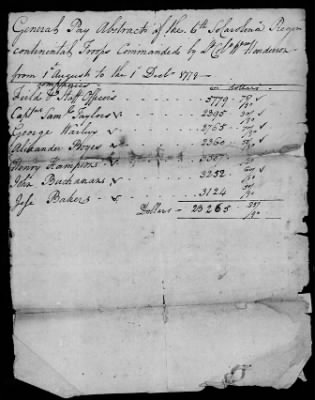 General Pay Abstracts of the 6th So Carolina Regm
Continental Troops Commanded by Lt Col Wm Henderson
from 1st August to the 1st Decr 1779
Companies
Dollars
Field & Staff Officers 5779
Captn Saml Taylors 2395
George Warleys 2765
Alexander Boyce 2360
Henry Hamptons
John Buchanans 3252
Jesse Bakers 3124
Dollars 23265